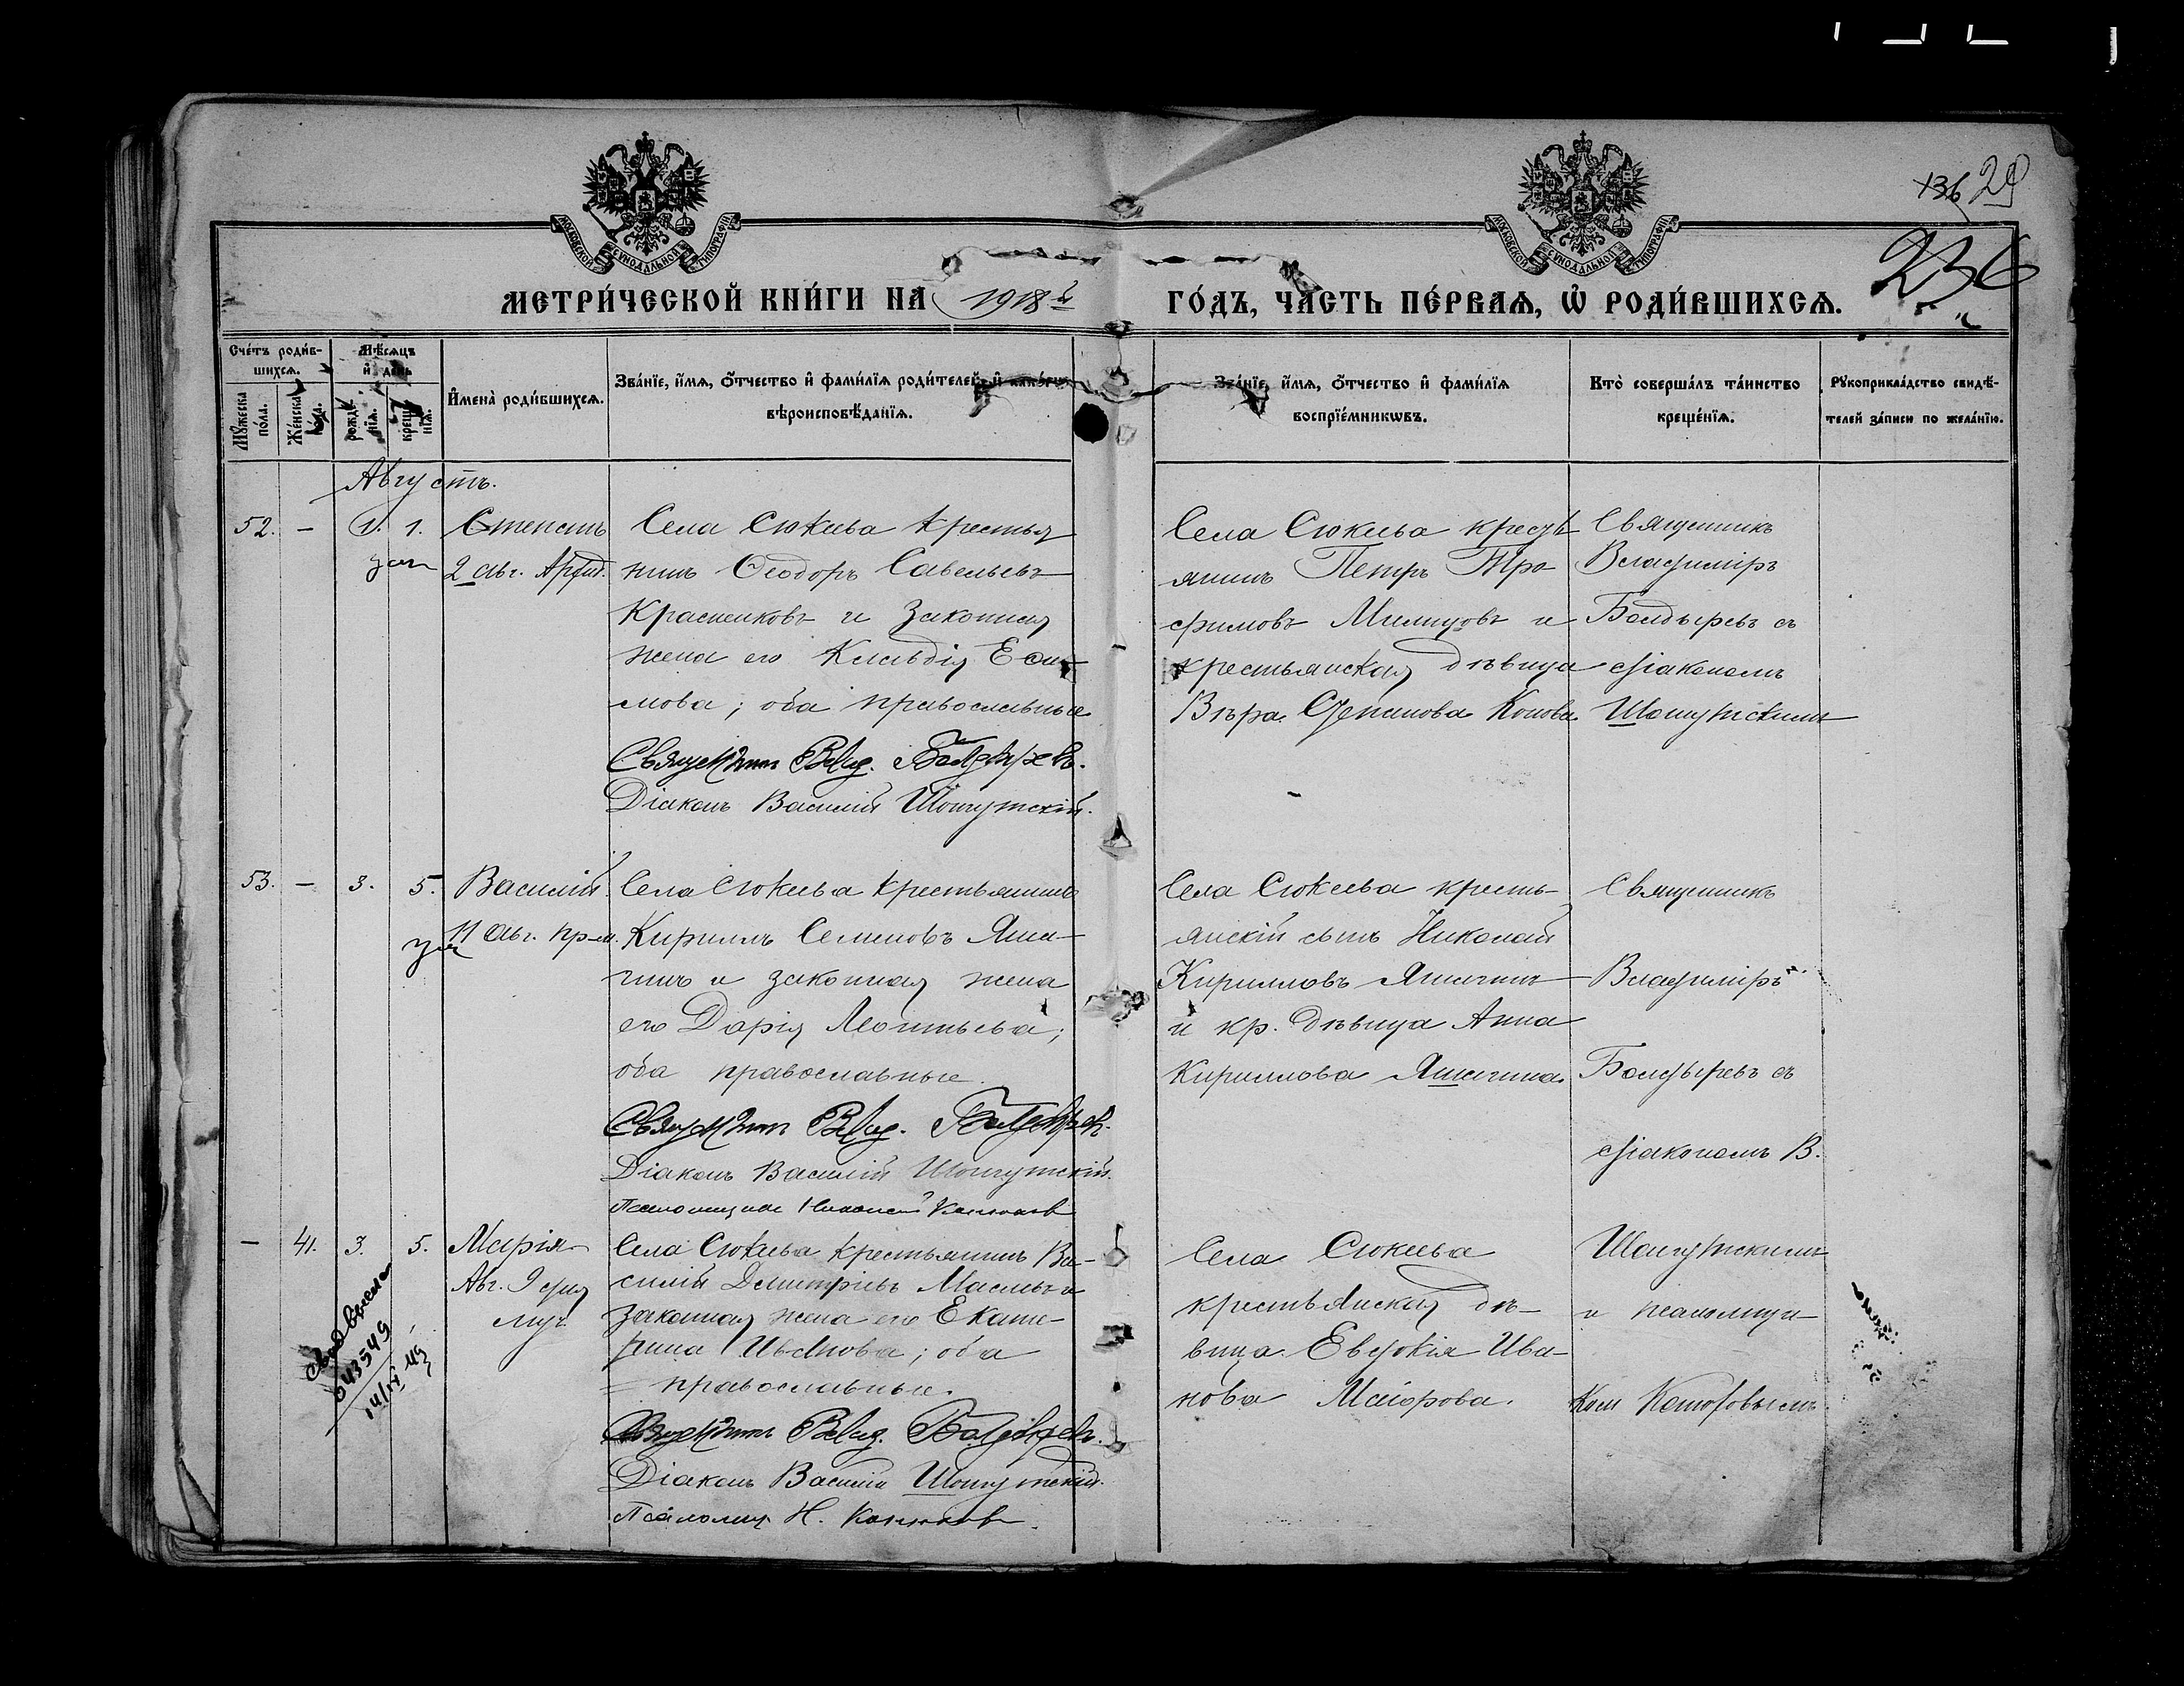 136 29
236
МОСКОВСКОЙ СѴНОДАЛЬНОЙ ТИПОГРАФІИ
МОСКОВСКОЙ СѴНОДАЛЬНОЙ ТИПОГРАФІИ
МЕТРИ́ЧЕСКОЙ КНИ́ГИ НА 1918й
ГО́ДЪ, ЧА́СТЬ ПЕ́РВАЯ, Ѽ РОДИ́ВШИХСЯ.
Сче́тъ роди́в-
шихся.
Мѣ́сяцъ
и҆ де́нь
Мꙋ́жеска
по́ла.
Же́нска
по́ла.
рожде́-
нїя.
креще́-
нїя.
И҆мена̀ роди́вшихся.
Зва́нїе, и҆́мя, ѻ҆́тчество и҆ фами́лїя роди́телей, и҆ како́гѡ
вѣроисповѣ́данїя.
Зва́нїе, и҆́мя, ѻ҆́тчество и҆ фами́лїя
воспрїе́мникѡвъ.
Кто̀ соверша́лъ та́инство
креще́нїя.
Рꙋкоприкла́дство свидѣ́-
телей за́писи по жела́нїю.
Августъ.
52. – 1. 1. Степанъ
2 авг.
Села Сюкеева крестья
нинъ Ѳеодоръ Савельевъ
Красненковъ и законная
жена его Клавдія
мова; оба православные
Священникъ Влад. Болдыревъ.
Діаконъ Василій Шошутскій.
Села Сюкеева кресть
янинъ Петръ Тро-
фимовъ и
крестьянская дѣвица
Вѣра Степанова Конова
Священникъ
Владиміръ
Болдыревъ съ
діакономъ
Шошутскимъ
53. – 3. 5. Василій.
11 авг.
Села Сюкеева крестьянинъ
Кириллъ Семеновъ Яша-
гинъ и законная жена
его Дарія Леонтьева;
оба православные.
Священникъ Влад. Болдыревъ.
Діаконъ Василій Шошутскій.
Псаломщикъ Николай
Села Сюкеева кресть-
янскій сынъ Николай
Кирилловъ Яшагинъ
и кр. дѣвица Анна
Кириллова Яшагина.
Священникъ
Владиміръ
Болдыревъ съ
діакономъ В.
– 41. 3. 5. Марія
Авг. 9
043549
Села Сюкеева крестьянинъ Ва-
силій Дмитріевъ и
законная жена его Екате-
рина Иванова; оба
православные.
Священникъ Влад. Болдыревъ.
Діаконъ Василій Шошутскій.
Псаломщ. Н.
Села Сюкеева
крестьянская дѣ-
вица Евдокія Ива-
нова Маіорова.
Шошутскимъ
и псаломщи-
комъ